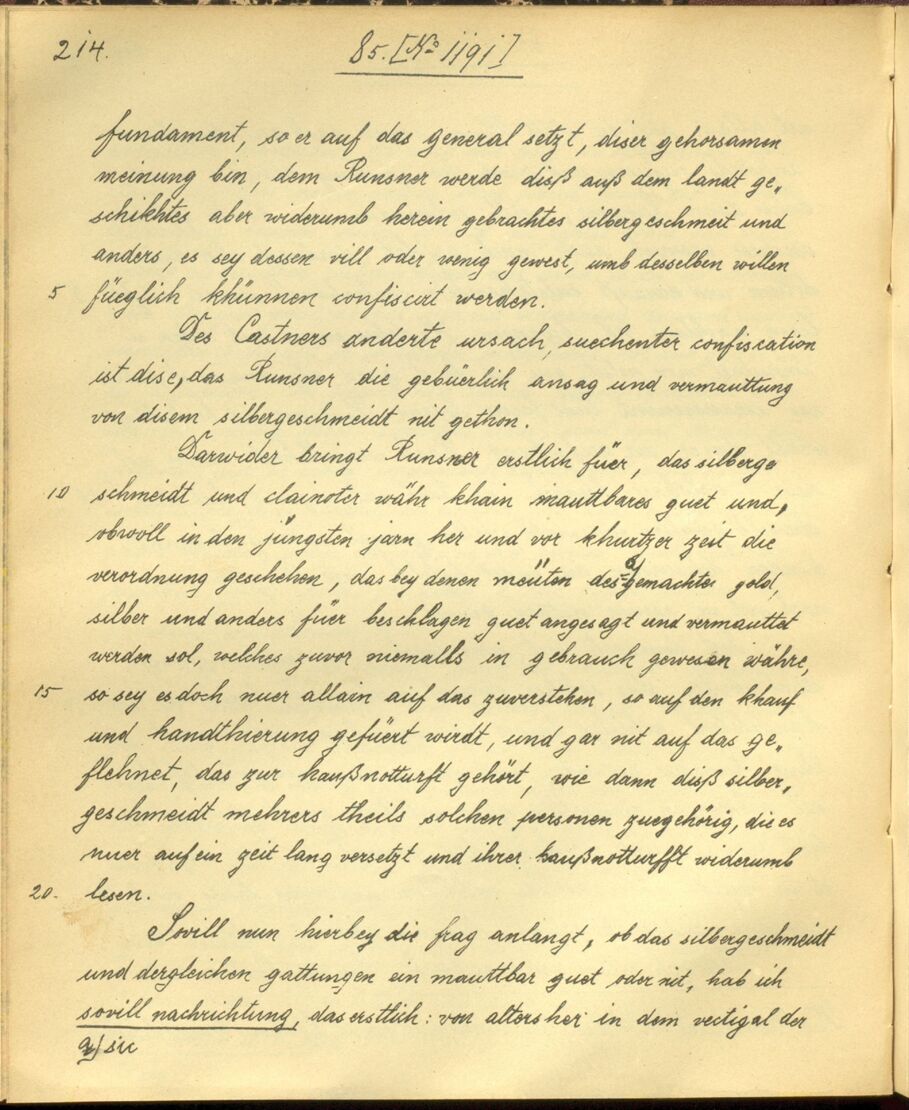 214.
85. [No 1191]
fundament, so er auf das general setzt, diser gehorsamen
meinung bin, dem Runsner werde diß auß dem landt ge„
schikhtes aber widerumb herein gebrachtes silbergeschmeit und
anders, es sey dessen vill oder wenig gewest, umb desselben willen
5 füeglich khünnen confiscirt werden.
Des Castners anderte ursach, suechenter confiscation
ist dise, das Runsner die gebüerlich ansag und vermauttung
von disem silbergeschmeidt nit gethon.
Darwider bringt Runsner erstlich füer, das silberge
10 schmeidt und clainoter währ khain mauttbares guet und,
obwoll in den jüngsten jarn her und vor khurtzer zeit die
verordnung geschehen, das bey denen meüten des a) gemachtes gold,
silber und anders füer beschlagen guet angesagt und vermauttet
werden sol, welches zuvor niemalls in gebrauch gewesen währe,
15 so sey es doch nuer allain auf das zuverstehen, so auf den khauf
und handthierung gefüert wirdt, und gar nit auf das ge„
flehnet, das zur haußnotturft gehört, wie dann diß silber„
geschmeidt mehrers theils solchen personen zuegehörig, die es
nuer auf ein zeit lang versetzt und ihrer haußnotturfft widerumb
20. lesen.
Sovill nun hierbey die frag anlangt, ob das silbergeschmeidt
und dergleichen gattungen ein mauttbar guet oder nit, hab ich
sovill nachrichtung, das erstlich: von alters her in dem vectigal der
a) sic